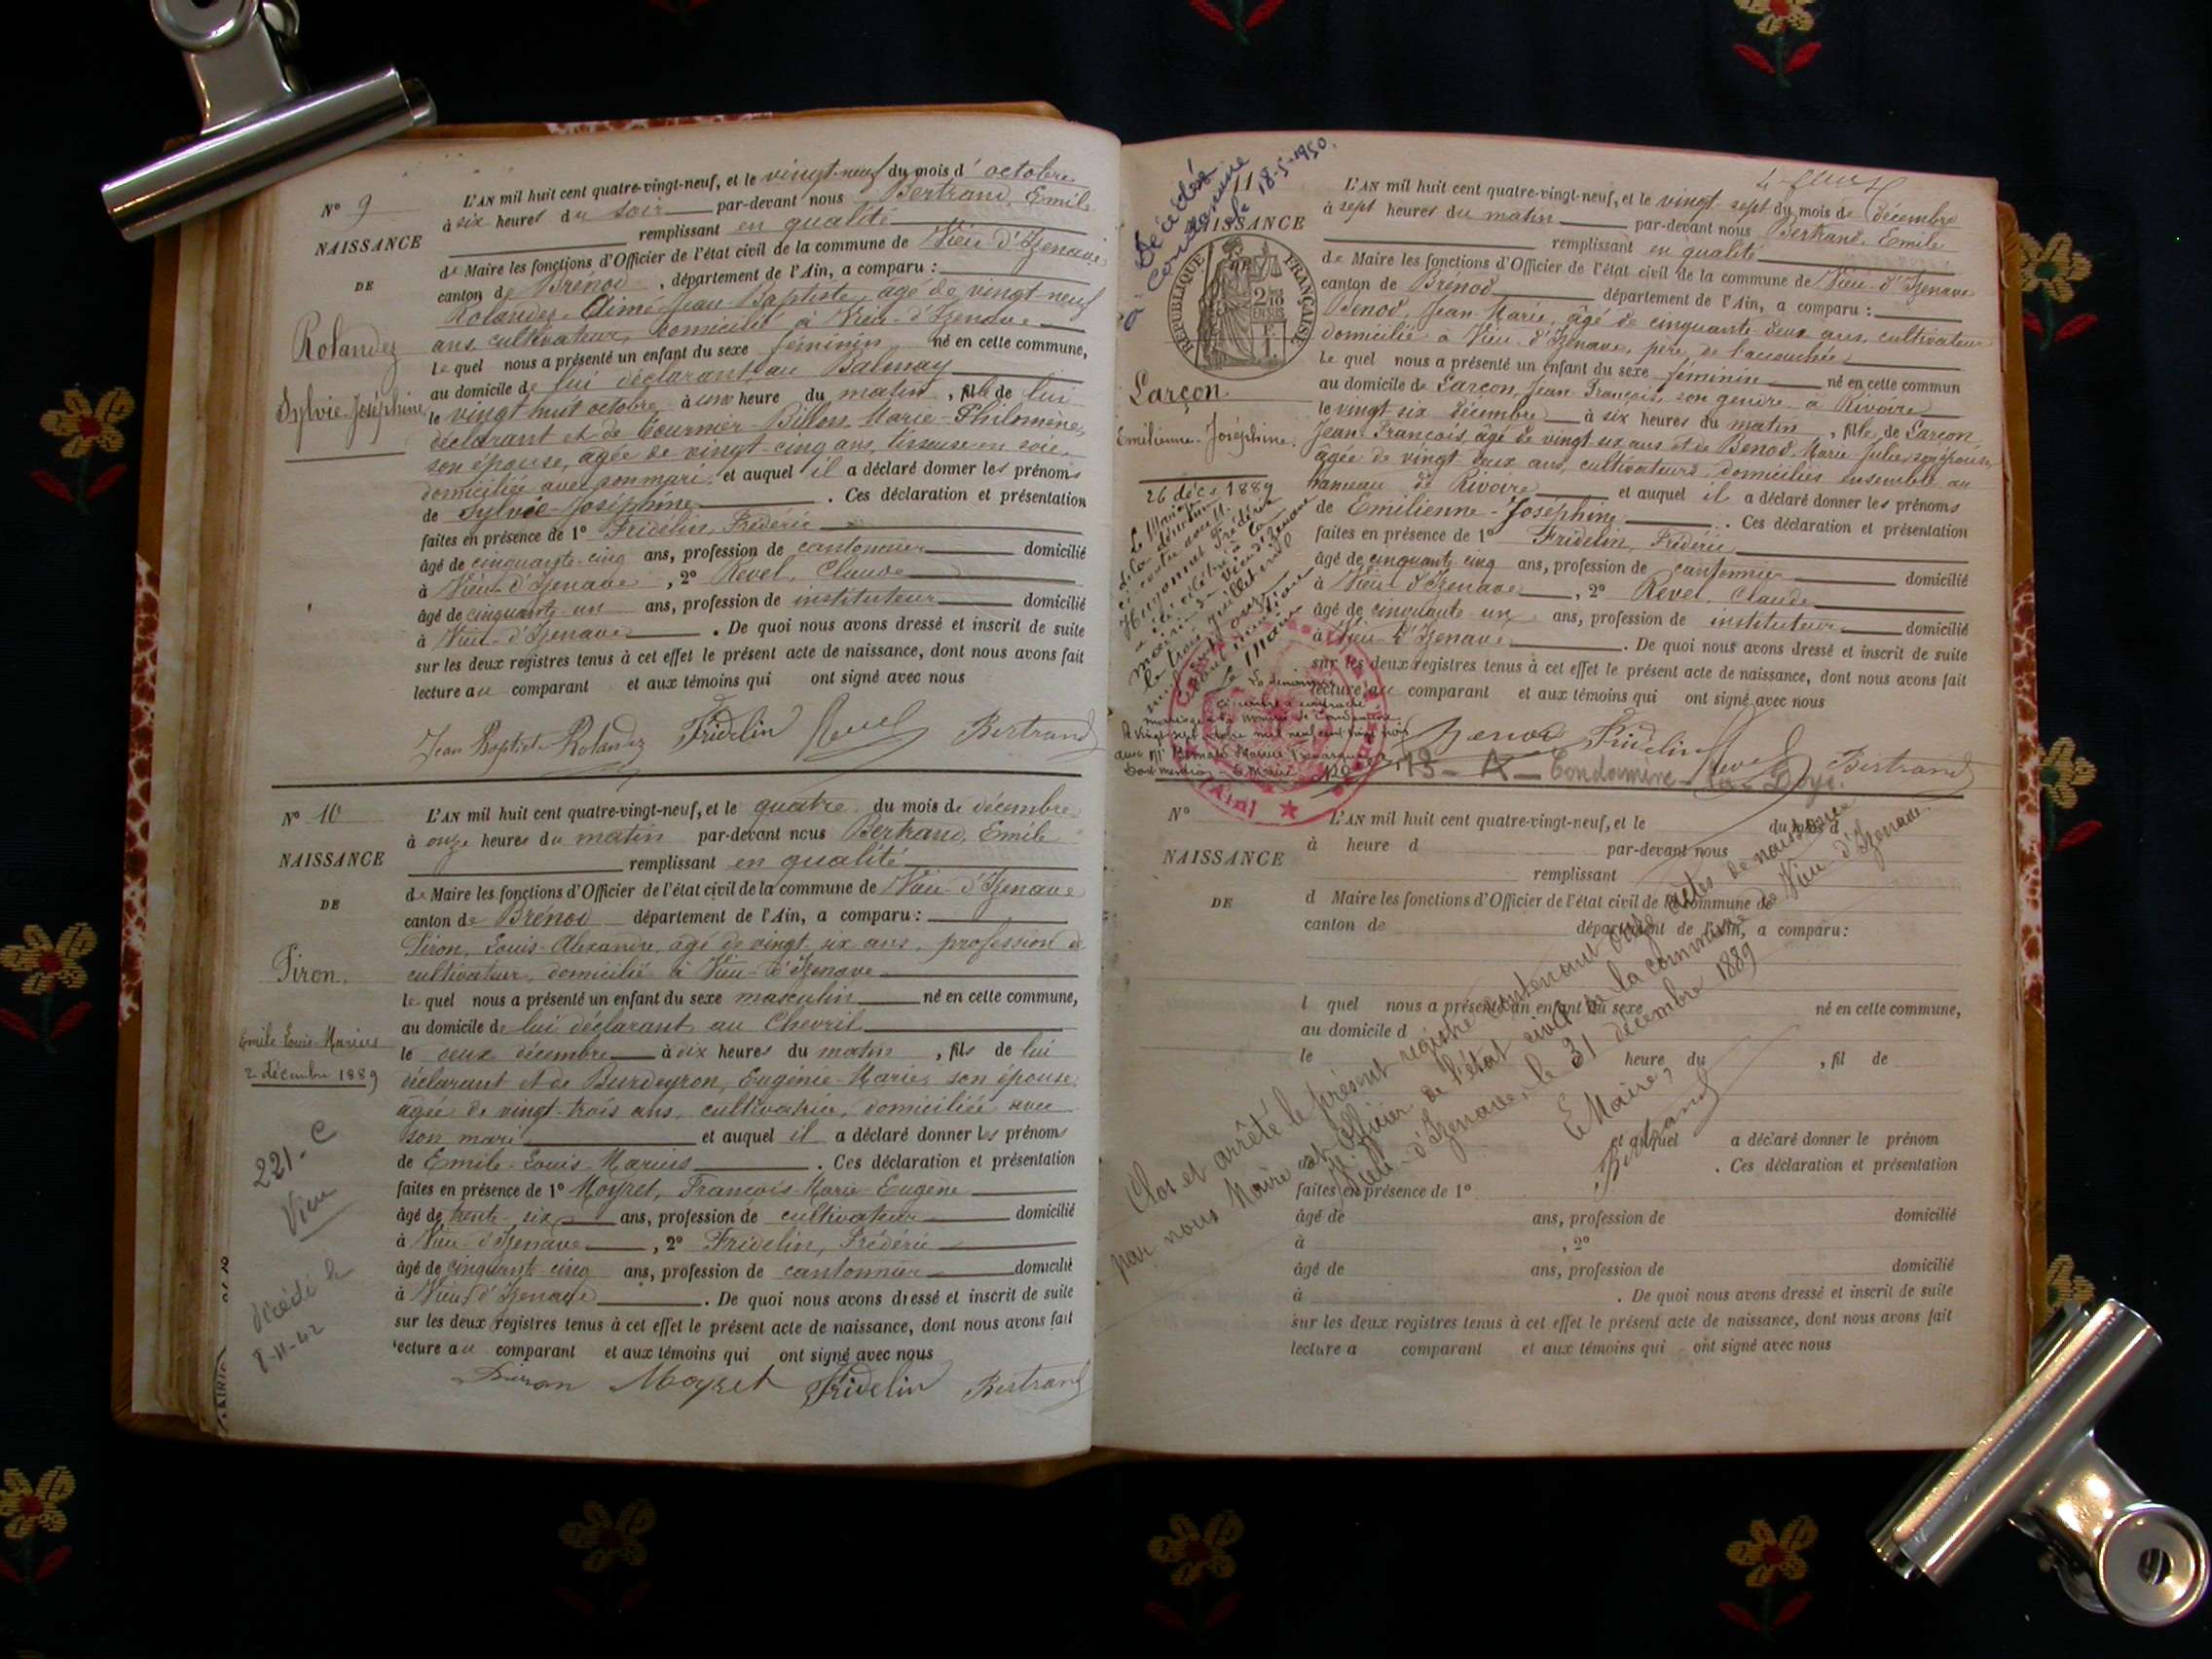 N° 9
NAISSANCE
DE
Rolandez
Sylvie-Joséphine
L'AN mil huit cent quatre-vingt-neuf, et le vingt-neuf du mois d'octobre
à six heures du soir par-devant nous Bertrand, Emile
remplissant en qualité
de Maire les fonctions d'Officier de l'état civil de la commune de Vieu-d'Izenave
canton de Brénod, département de l'Ain, a comparu :
Rolandez, Aimé-Jean-Baptiste, âgé de vingt-neuf
ans, cultivateur, domicilié à Vieu-d'Izenave
lequel nous a présenté un enfant du sexe féminin né en cette commune,
au domicile de lui déclarant, au Balmay
le vingt huit octobre à une heure du matin, fille de lui
déclarant et de Tournier-Billon, Marie-Philomène,
son épouse, âgée de vingt-cinq ans, tisseuse en soie,
domiciliée avec son mari, et auquel il a déclaré donner les prénoms
de Sylvie-Joséphine. Ces déclaration et présentation
faites en présence de 1° Fridelin, Frédéric
âgé de cinquante-cinq ans, profession de cantonnier domicilié
à Vieu-d'Izenave, 2° Revel, Claude
âgé de cinquante-un ans, profession de instituteur domicilié
à Vieu-d'Izenave. De quoi nous avons dressé et inscrit de suite
sur les deux registres tenus à cet effet le présent acte de naissance, dont nous avons fait
lecture au comparant et aux témoins qui ont signé avec nous
Jean Baptiste Rolandez Fridelin Revel Bertrand
N° 10
NAISSANCE
DE
Piron,
Emile-Louis-Marius
2 décembre 1889
221-C
Vieu
décédé le
8-11-42
L'AN mil huit cent quatre-vingt-neuf, et le quatre du mois de décembre
à onze heures du matin par-devant nous Bertrand, Emile
remplissant en qualité
de Maire les fonctions d'Officier de l'état civil de la commune de Vieu-d'Izenave
canton de Brénod département de l'Ain, a comparu :
Piron, Louis-Alexandre, âgé de vingt-six ans, profession de
cultivateur, domicilié à Vieu-d'Izenave
lequel nous a présenté un enfant du sexe masculin né en cette commune,
au domicile de lui déclarant au Chevril
le deux décembre à dix heures du matin, fils de lui
déclarant et de Burdeyron, Eugénie-Marie, son épouse,
âgée de vingt-trois ans, cultivatrice, domiciliée avec
son mari et auquel il a déclaré donner les prénoms
de Emile-Louis-Marius. Ces déclaration et présentation
faites en présence de 1° Moyret, François-Marie-Eugène
âgé de trente-six ans, profession de cultivateur domicilié
à Vieu-d'Izenave, 2° Fridelin, Frédéric
âgé de cinquante-cinq ans, profession de cantonnier domicilié
à Vieu-d'Izenave. De quoi nous avons dressé et inscrit de suite
sur les deux registres tenus à cet effet le présent acte de naissance, dont nous avons fait
lecture au comparant et aux témoins qui ont signé avec nous
Piron Moyret Fridelin Bertrand
décédée
à Condamine
le 18-5-1950.
11
NAISSANCE
RÉPUBLIQUE FRANÇAISE
Larçon
Emilienne-Joséphine.
26 déc. 1889
L'AN mil huit cent quatre-vingt-neuf, et le vingt-sept du mois de décembre
à sept heures du matin par-devant nous Bertrand, Emile
remplissant en qualité
de Maire les fonctions d'Officier de l'état civil de la commune de Vieu-d'Izenave
canton de Brénod département de l'Ain, a comparu :
Benod, Jean-Marie, âgé de cinquante-deux ans, cultivateur
domicilié à Vieu-d'Izenave, père de l'accouchée
lequel nous a présenté un enfant du sexe féminin né en cette commun
au domicile de Larçon, Jean-François, son gendre à Rivoire
le vingt six décembre à six heures du matin, fille de Larçon,
Jean-François, âgé de vingt-six ans et de Benod, Marie-Julie, son épouse,
âgée de vingt-deux ans, cultivateurs, domiciliés ensemble au
hameau de Rivoire et auquel il a déclaré donner les prénoms
de Emilienne-Joséphine. Ces déclaration et présentation
faites en présence de 1° Fridelin, Frédéric
âgé de cinquante cinq ans, profession de cantonnier domicilié
à Vieu-d'Izenave, 2° Revel, Claude
âgé de cinquante-un ans, profession de instituteur domicilié
à Vieu-d'Izenave. De quoi nous avons dressé et inscrit de suite
sur les deux registres tenus à cet effet le présent acte de naissance, dont nous avons fait
lecture au comparant et aux témoins qui ont signé avec nous
Benod Fridelin Revel Bertrand
13-A-Condamine-la-Doye.
(Ain)
N°
NAISSANCE
DE
L'AN mil huit cent quatre-vingt-neuf, et le du mois d
à heure d par-devant nous
remplissant
d Maire les fonctions d'Officier de l'état civil de la commune de
canton de département de l'Ain, a comparu :
l quel nous a présenté un enfant du sexe né en cette commune,
au domicile d
le heure du , fil de
et auquel a déclaré donner le prénom
de . Ces déclaration et présentation
faites en présence de 1°
âgé de ans, profession de domicilié
à , 2°
âgé de ans, profession de domicilié
à . De quoi nous avons dressé et inscrit de suite
sur les deux registres tenus à cet effet le présent acte de naissance, dont nous avons fait
lecture a comparant et aux témoins qui ont signé avec nous
Clos et arrêté le présent registre contenant onze actes de naissance
par nous Maire et officier de l'état civil de la commune de Vieu-d'Izenave.
Vieu-d'Izenave, le 31 décembre 1889
Le Maire,
Bertrand